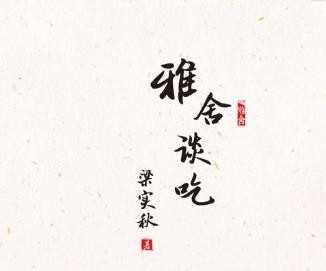 雅舍谈吃
梁实秋